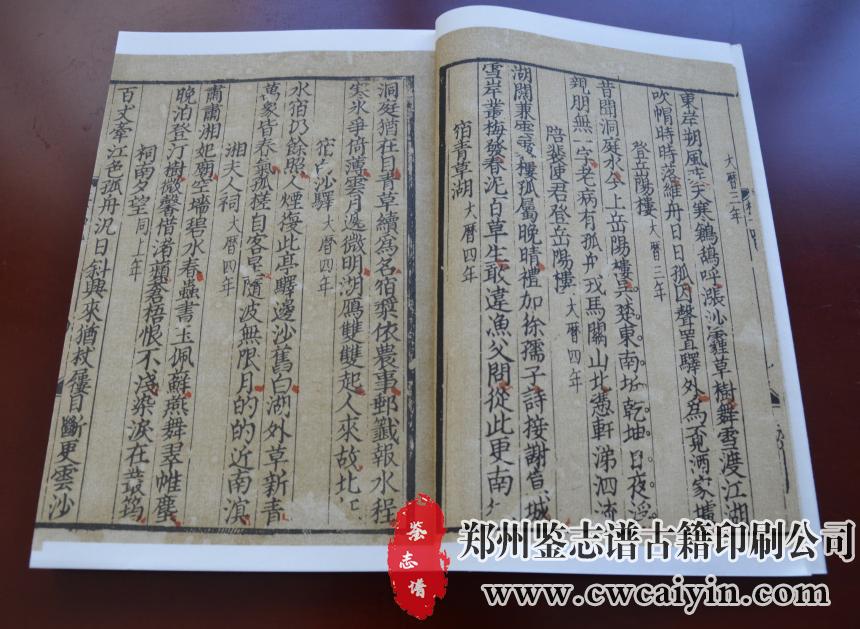 大曆三年
東岸朔風疾天寒鶬鴰呼漲沙霾草樹舞雪渡江湖
吹帽時時落維舟日日孤因聲置驛外為覓酒家壚
登岳陽樓 大曆三年
昔聞洞庭水今上岳陽樓吳楚東南坼乾坤日夜浮
親朋無一字老病有孤舟戎馬關山北憑軒涕泗流
陪裴使君登岳陽樓 大曆四年
湖闊兼雲霧樓孤屬晚晴禮加徐孺子詩接謝宣城
雪岸叢梅發春泥百草生敢違漁父問從此更南
宿青草湖 大曆四年
洞庭猶在目青草續為名宿槳依農事郵籤報水程
寒氷爭倚薄雲月遞微明湖鴈雙雙起人來故北
宿白沙驛 大曆四年
水宿仍餘照人煙復此亭驛邊沙舊白湖外草新青
萬象皆春氣孤槎自客星隨波無限月的的近南溟
湘夫人祠 大曆四年
肅肅湘妃廟空墻碧水春蟲書玉佩蘚燕舞翠帷塵
晚泊登汀樹微馨借渚蘋蒼梧恨不淺染淚在叢筠
祠南夕望 同上年
百丈牽江色孤舟汎日斜興來猶杖屨目斷更雲沙
鉴志谱
郑州鉴志谱古籍印刷公司
www.cwcaiyin.com